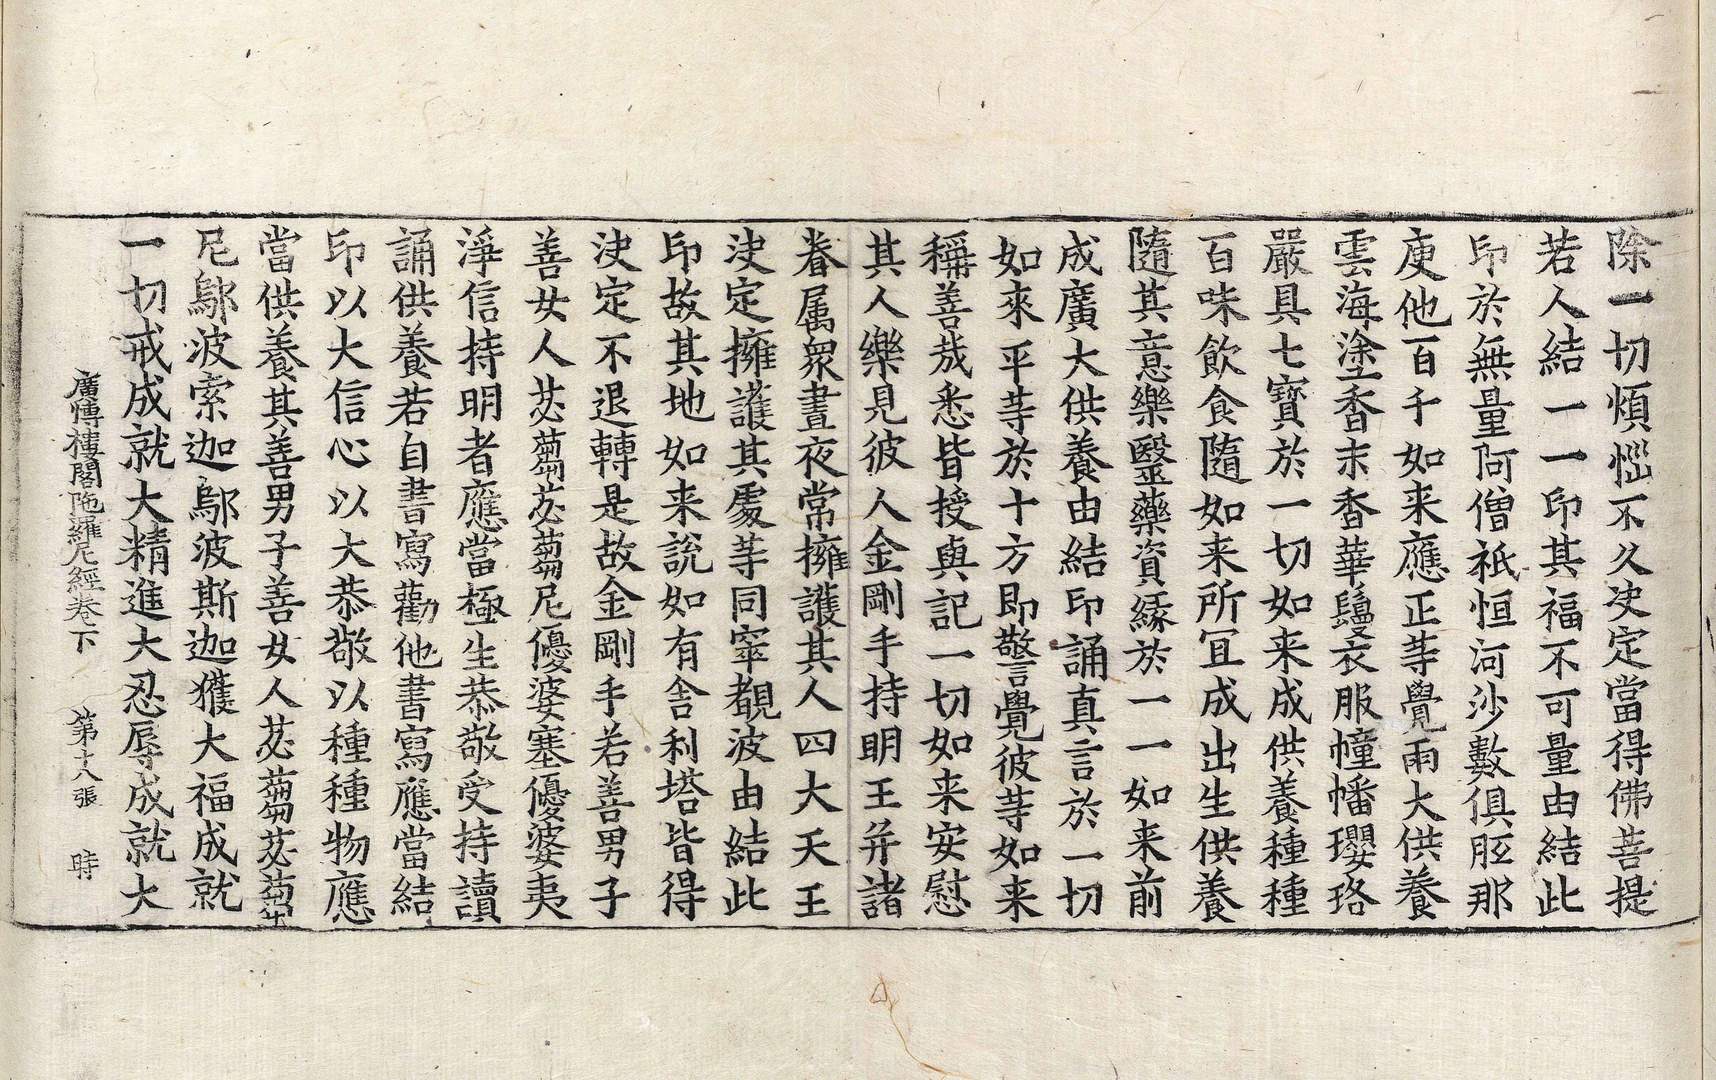 除一切煩惱不久决定當得佛菩提
若人結一一印其福不可量由結此
印於無量阿僧祇恒河沙數俱胝那
庾他百千如来應正等覺雨大供養
雲海塗香末香華鬘衣服幢幡瓔珞
嚴具七寶於一切如来成供養種種
百味飲食隨如来所冝成出生供養
隨其意樂醫藥資緣於一一如来前
成廣大供養由結印誦真言於一切
如來平等於十方即警覺彼等如来
稱善㢤悉皆授與記一切如来安慰
其人樂見彼人金剛手持明王并諸
眷属衆晝夜常擁護其人四大天王
决定擁護其處等同窣覩波由結此
印故其地如来說如有舍利塔皆得
决定不退轉是故金剛手若善男子
善女人苾蒭苾蒭尼優婆塞優婆夷
淨信持明者應當極生恭敬受持讀
誦供養若自書寫勸他書寫應當結
印以大信心以大恭敬以種種物應
當供養其善男子善女人苾蒭苾蒭
尼鄔波索迦鄔波斯迦獲大福成就
一切戒成就大精進大忍辱成就大
廣博樓閣陁羅尼經卷下 第十八張 時